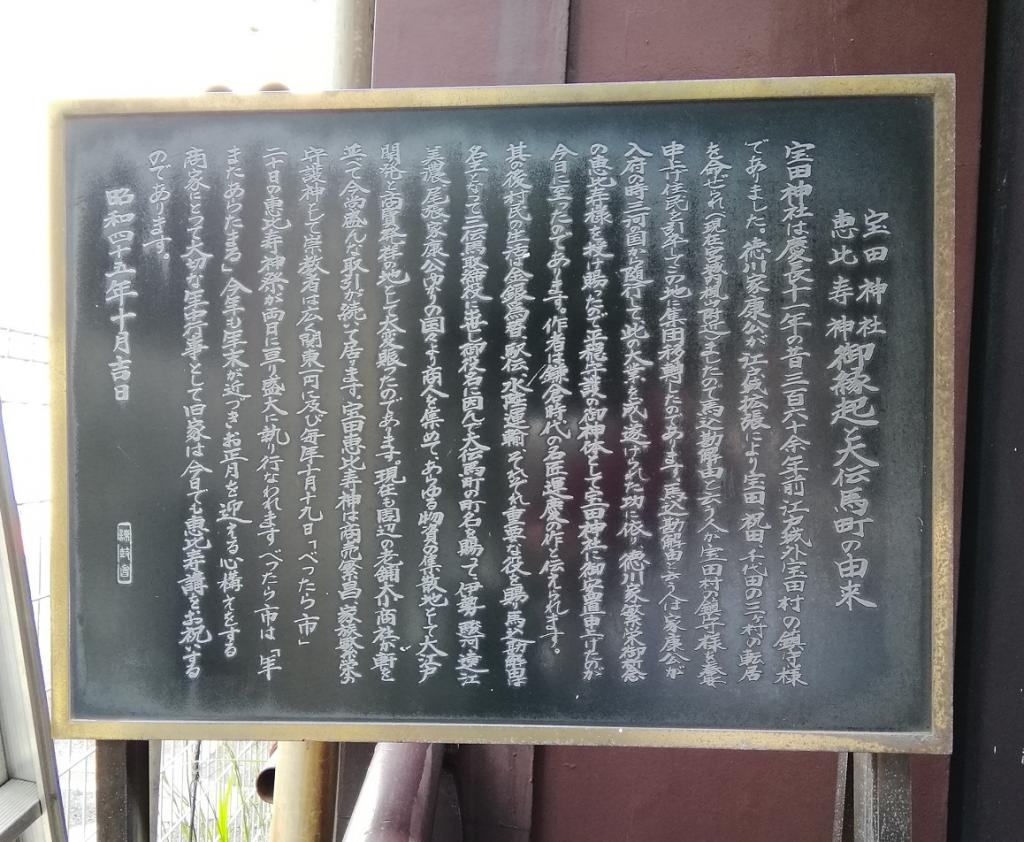 宝田神社
恵比寿神
御縁起と大伝馬町の由来
宝田神社は慶長十一年の昔三百六十余年前江戸城外宝田村の鎮守様
でありました。徳川家康公が江戸城拡張により宝田、祝田、千代田の三ヶ村の転居
を命ぜられ(現在宮城楓山附近)ましたので馬込勘解由と云う人が宝田村の鎮守様を奉安
申上げ住民を引率してこの地に集団移転したのであります。馬込勘解由と云う人は家康公が
入府の時三河の国から随行して此の大業を成し遂げられた功に依り徳川家繁栄御祈念
の恵比寿様を授け賜ったので平穏守護の御神体として宝田神社に御安置申上げたのが
今日に至ったのであります。作者は鎌倉時代の名匠運慶の作と伝えられます。
其の後村民の生活は金銀為替、駅伝、水陸運輸、それぞれ重要な役を賜り馬込勘解由は
名主となって三伝馬取締役に出世し御役名に因んで大伝馬町の町名を賜って伊勢、駿河、遠江
美濃、尾張、家康公ゆかりの国々より商人を集めて、あらゆる物資の集散地として大江戸
開発と商業発祥の地として大変賑ったのであります。現在も周辺の老舗、大小商社が軒を
並べて今尚盛んな取引が続いて居ります。宝田恵比寿神は商売繁昌、家族繁栄の
守護神として崇敬者は広く関東一円に及び毎年十月十九日「べったら市」
二十日の恵比寿神祭が両日に亘り盛大に執り行なわれます べったら市は「年
またあらたまる」今年も年末が近づきお正月を迎える心構えをする
商家にとって大切な年中行事として旧家は今日でも恵比寿講をお祝いする
のであります。
昭和四十五年十月吉日